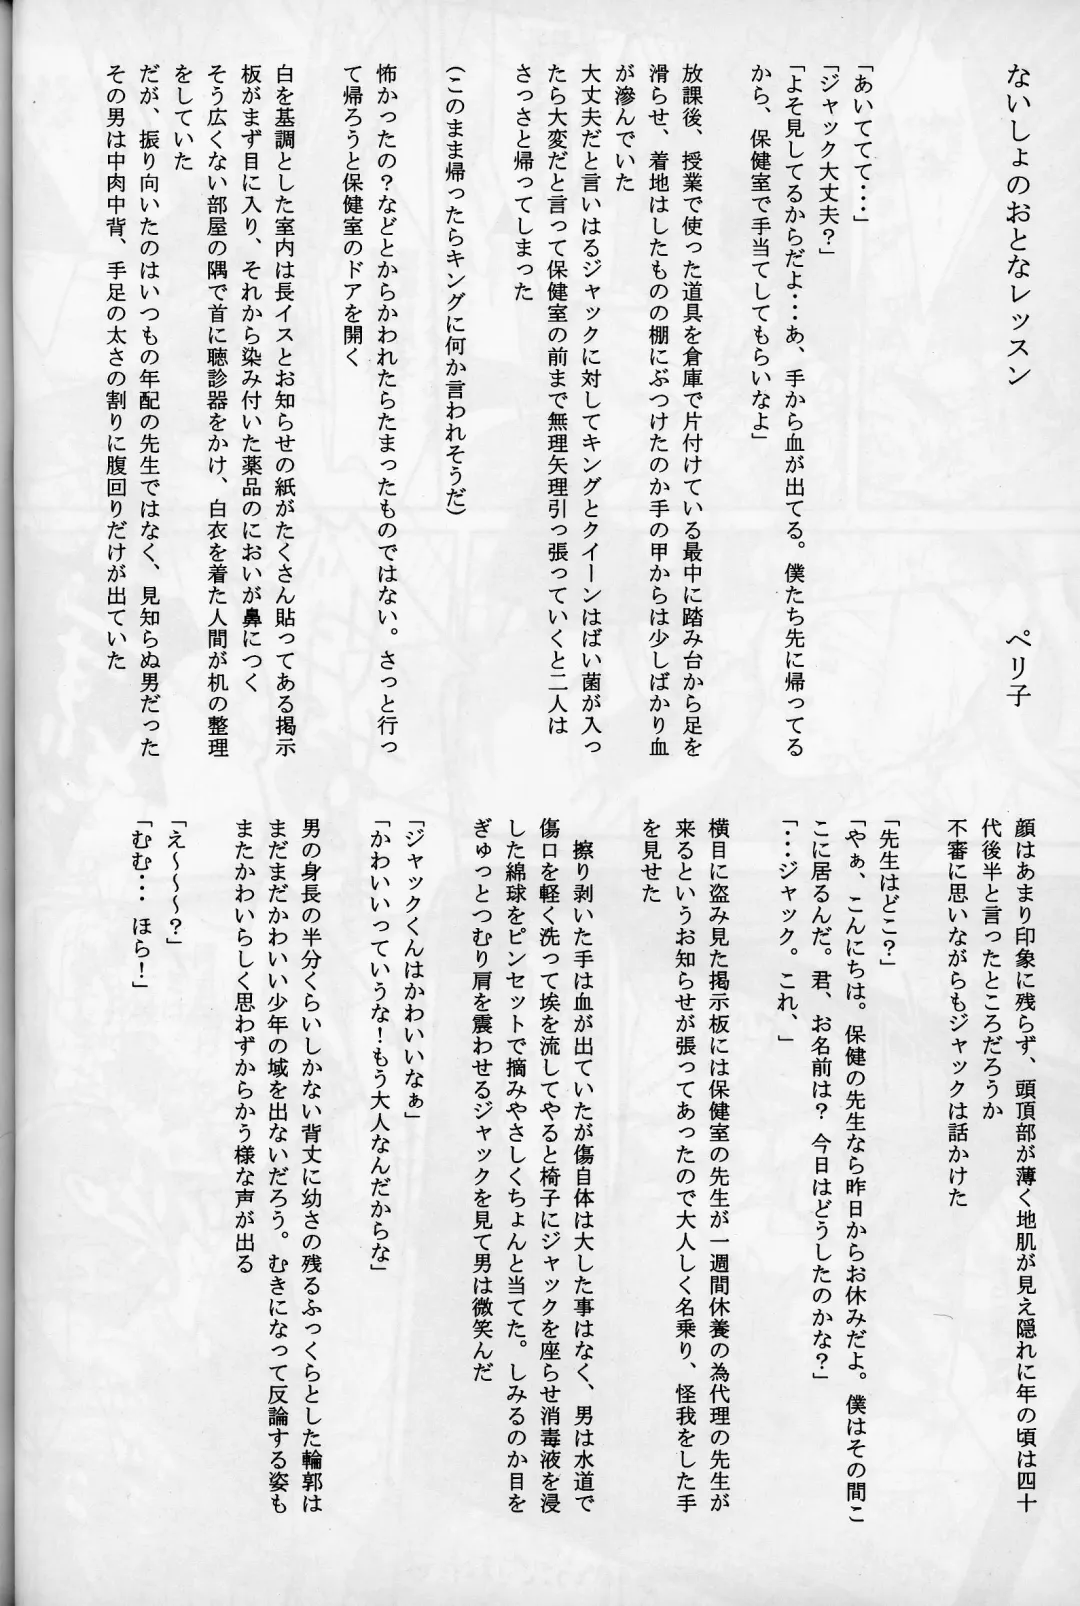 ないしょのおとなレッスン
ペリ子
「あいててて・・・」
「ジャック大丈夫？」
「よそ見してるからだよ・・・あ、手から血が出てる。僕たち先に帰ってる
から、保健室で手当てしてもらいなよ」
放課後、授業で使った道具を倉庫で片付けている最中に踏み台から足を
滑らせ、着地はしたものの棚にぶつけたのか手の甲からは少しばかり血
が滲んでいた
大丈夫だと言いはるジャックに対してキングとクイーンはばい菌が入っ
たら大変だと言って保健室の前まで無理矢理引っ張っていくと二人は
さっさと帰ってしまった
（このまま帰ったらキングに何か言われそうだ）
怖かったの？などとからかわれたらたまったものではない。さっと行っ
て帰ろうと保健室のドアを開く
白を基調とした室内は長イスとお知らせの紙がたくさん貼ってある掲示
板がまず目に入り、それから染み付いた薬品のにおいが鼻につく
そう広くない部屋の隅で首に聴診器をかけ、白衣を着た人間が机の整理
をしていた
だが、振り向いたのはいつもの年配の先生ではなく、見知らぬ男だった
その男は中肉中背、手足の太さの割りに腹回りだけが出ていた
顔はあまり印象に残らず、頭頂部が薄く地肌が見え隠れに年の頃は四十
代後半と言ったところだろうか
不審に思いながらもジャックは話かけた
「先生はどこ？」
「やぁ、こんにちは。保健の先生なら昨日からお休みだよ。僕はその間こ
こに居るんだ。君、お名前は？ 今日はどうしたのかな？」
「・・・ジャック。これ、」
横目に盗み見た掲示板には保健室の先生が一週間休養の為代理の先生が
来るというお知らせが張ってあったので大人しく名乗り、怪我をした手
を見せた
擦り剥いた手は血が出ていたが傷自体は大した事はなく、男は水道で
傷口を軽く洗って埃を流してやると椅子にジャックを座らせ消毒液を浸
した綿球をピンセットで摘みやさしくちょんと当てた。しみるのか目を
ぎゅっとつむり肩を震わせるジャックを見て男は微笑んだ
「ジャックくんはかわいいなぁ」
「かわいいっていうな！もう大人なんだからな」
男の身長の半分くらいしかない背丈に幼さの残るふっくらとした輪郭は
まだまだかわいい少年の域を出ないだろう。むきになって反論する姿も
またかわいらしく思わずからかう様な声が出る
「え～～～～？」
「むむ・・・ ほら！」